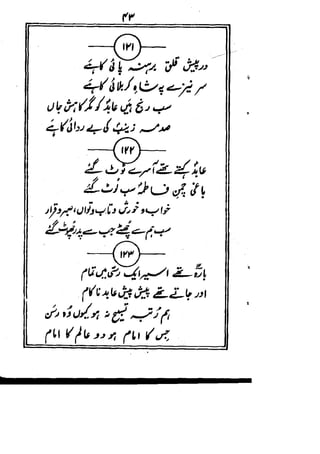 ۴۳
۱۲۱
درپیش قلق برہنہ پائی کا ہے
سر نیزے پہ شاہِ کربلائی کا ہے
سب رنج ہیں عابدؑ کو مگر کاہشِ جاں
صدمہ زینبؑ کی بے ردائی کا ہے
۱۲۲
عابدؑ کہتے تھے آسرے ٹوٹ گئے
باغی چمنِ فاطمہؑ سب لوٹ گئے
خواب و خورش و تاب و تواں، صبر و قرار
سب ہم سے چھٹے جب سے پدر چھوٹ گئے
۱۲۳
بارہ تھے اسیر ایک رسی میں تمام
اور جاتے تھے پیش پیش عابد ناکام
ہم رتبہ تسبیح نہ ہو کیوں وہ رسن
جس کا امام ہو دو عالم کا امام